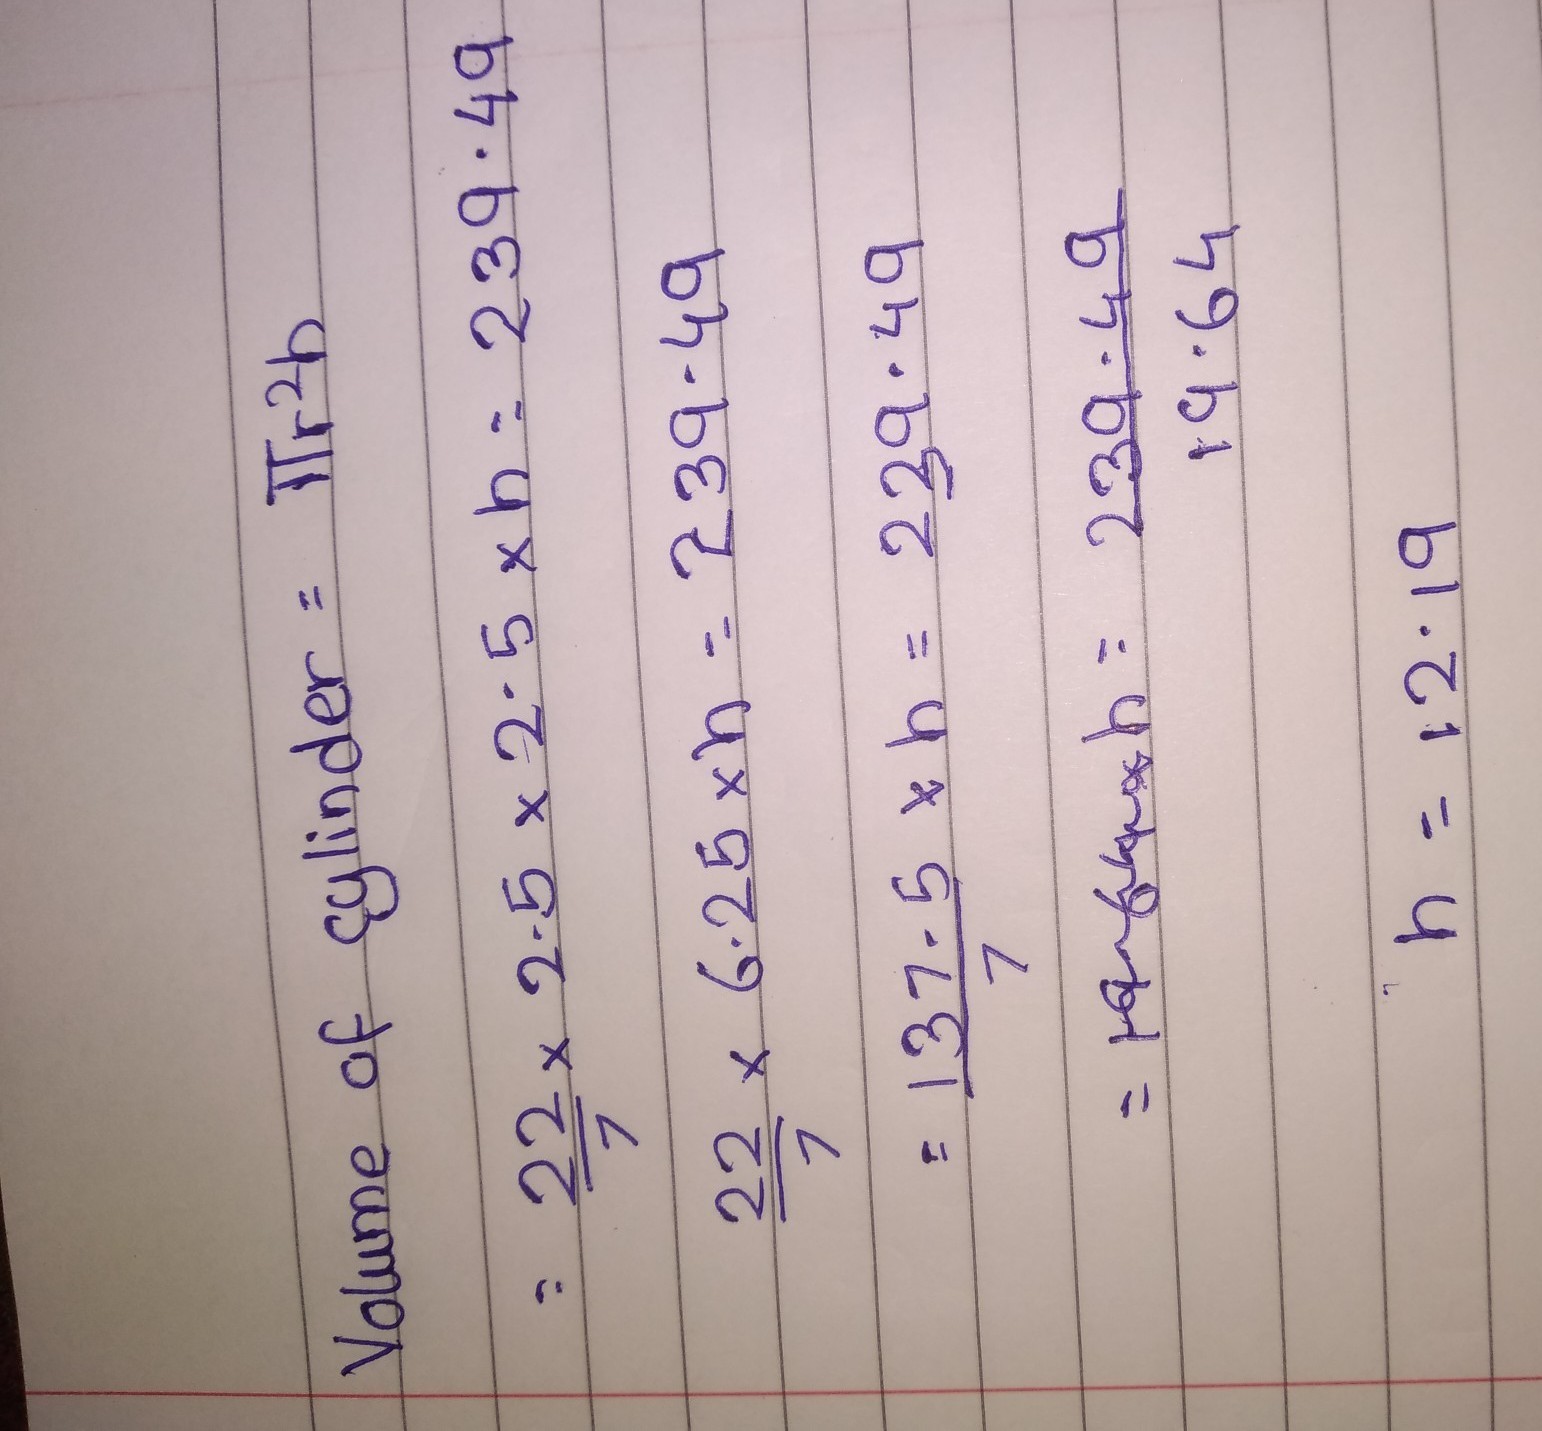 Volume of cylinder = πr²h
= 22/7 × 2.5 × 2.5 × h = 239.49
22/7 × 6.25 × h = 239.49
= 137.5/7 × h = 239.49
= h = 239.49/19.64
h = 12.19